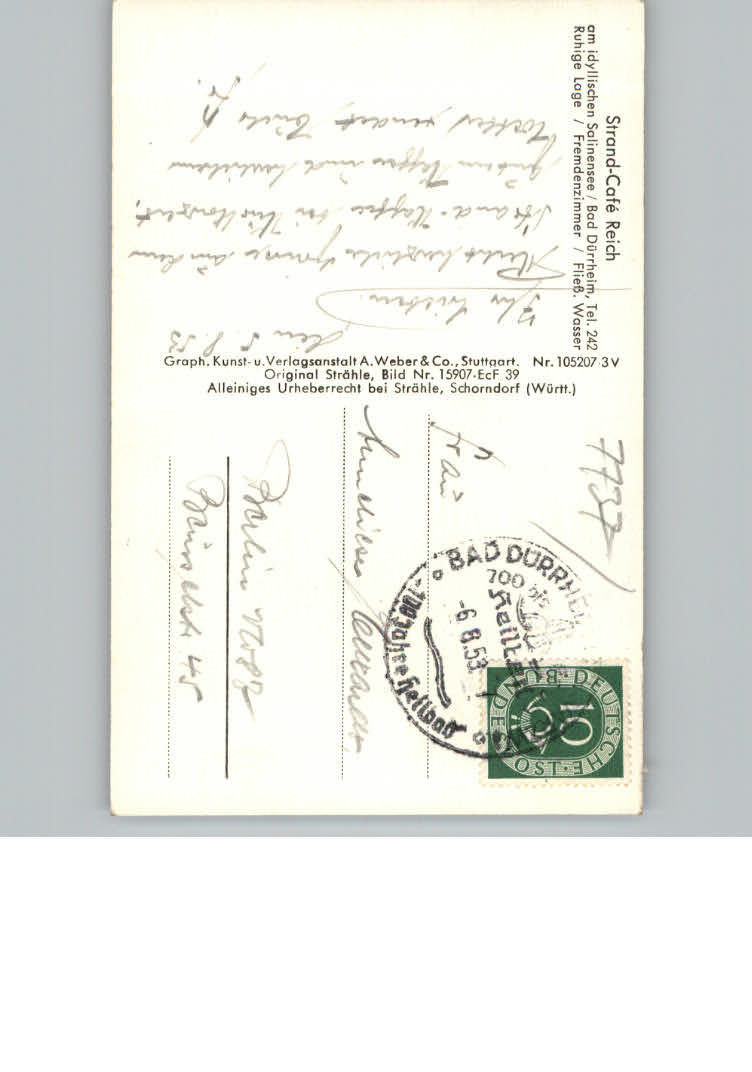 Strand-Café Reich
am idyllischen Salinensee / Bad Dürrheim, Tel. 242
Ruhige Lage / Fremdenzimmer / Fließ. Wasser
den 5.8.53
Ihr Lieben.
Recht herzliche Grüsse aus dem
Strand-Kaffee bei Kurkonzert,
gutem Kaffee und
sendet Euch
Graph. Kunst- u. Verlagsanstalt A. Weber & Co., Stuttgart. Nr. 105207·3 V
Original Strähle, Bild Nr. 15907·EcF 39
Alleiniges Urheberrecht bei Strähle, Schorndorf (Württ.)
7737
Frau
Berlin N
45
BAD DÜRRHEIM
700 bis
-6.8.53
100 Jahre Heilbad
DEUTSCHE BUNDESPOST
10